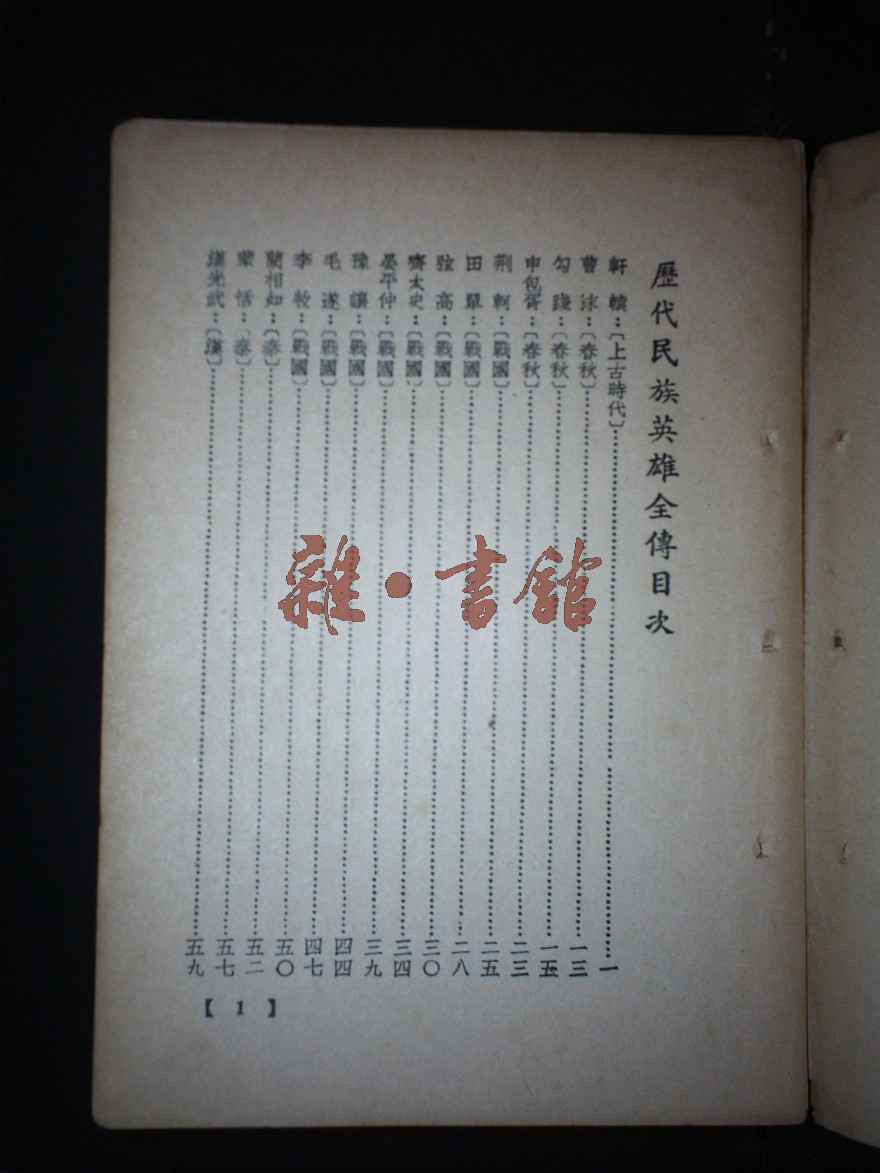 歷代民族英雄全傳目次
軒轅：〔上古時代〕 一
曹沫：〔春秋〕 一三
勾踐：〔春秋〕 一五
申包胥：〔春秋〕 二三
荆軻：〔戰國〕 二五
田單：〔戰國〕 二八
弦高：〔戰國〕 三〇
齊太史：〔戰國〕 三四
晏平仲：〔戰國〕 三九
豫讓：〔戰國〕 四四
毛遂：〔戰國〕 四七
李牧：〔戰國〕 五〇
藺相如：〔秦〕 五二
蒙恬：〔秦〕 五七
漢光武：〔漢〕 五九
【 1 】
雜·書館